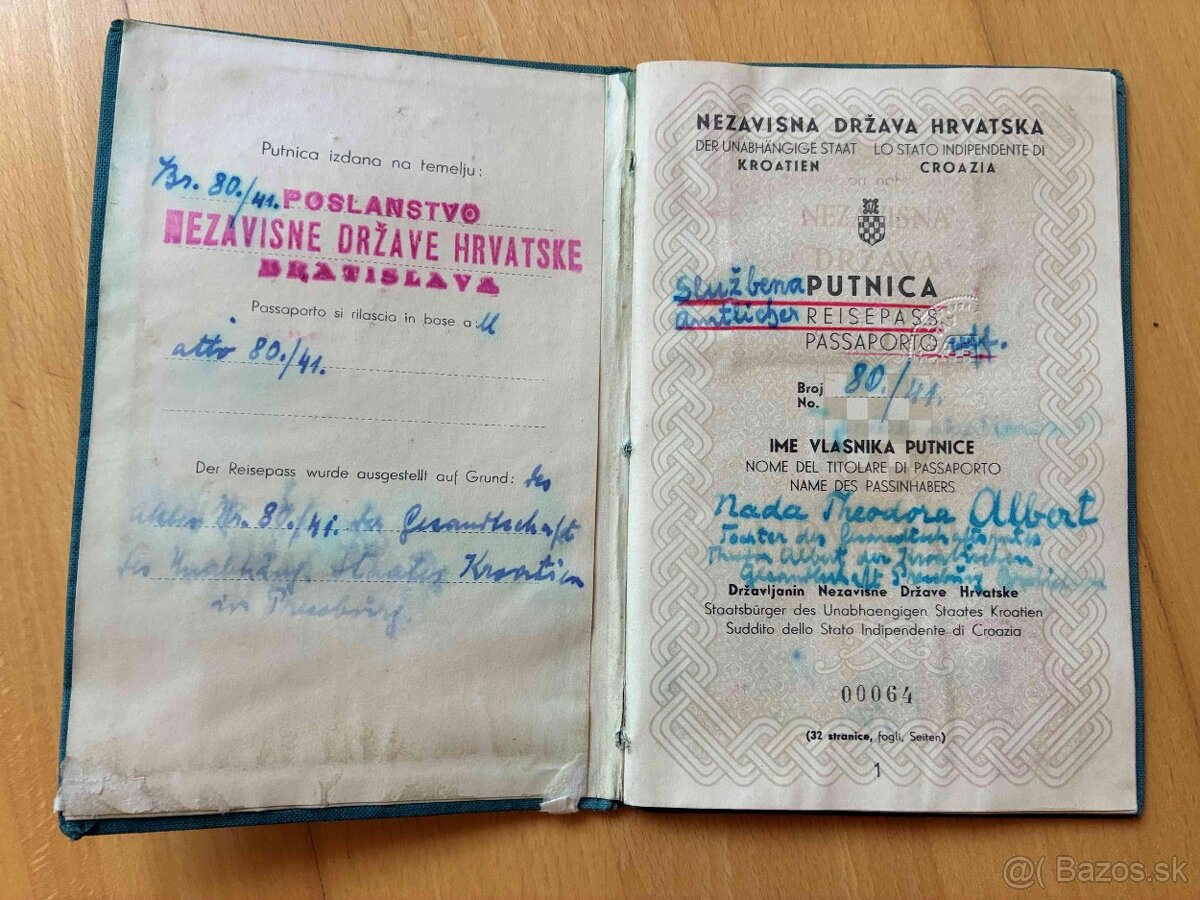 Putnica izdana na temelju:
Br. 80./41.
POSLANSTVO
NEZAVISNE DRŽAVE HRVATSKE
BRATISLAVA
Passaporto si rilascia in base a ll
atto 80./41.
Der Reisepass wurde ausgestellt auf Grund: des
Aktes Nr. 80./41. der Gesandtschaft
des Unabhäng. Staates Kroatien
in Pressburg.
NEZAVISNA DRŽAVA HRVATSKA
DER UNABHÄNGIGE STAAT LO STATO INDIPENDENTE DI
KROATIEN CROAZIA
NEZAVISNA
DRŽAVA
Službena PUTNICA
Amtlicher REISEPASS
PASSAPORTO uff.
Broj 80./41.
No.
IME VLASNIKA PUTNICE
NOME DEL TITOLARE DI PASSAPORTO
NAME DES PASSINHABERS
Nada Theodora Albert
Tochter des Gesandtschaftsrates
Albert der Kroatischen
Gesandtschaft Pressburg
Državljanin Nezavisne Države Hrvatske
Staatsbürger des Unabhaengigen Staates Kroatien
Suddito dello Stato Indipendente di Croazia
00064
(32 stranice, fogli, Seiten)
1
@( Bazos.sk